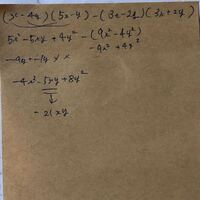 (x-4y)(5x-y)-(3x-2y)(3x+2y)
5x²-5xy+4y²-(9x²-4y²)
-9x²+4y²
-4x²-5xy+8y²
-21xy